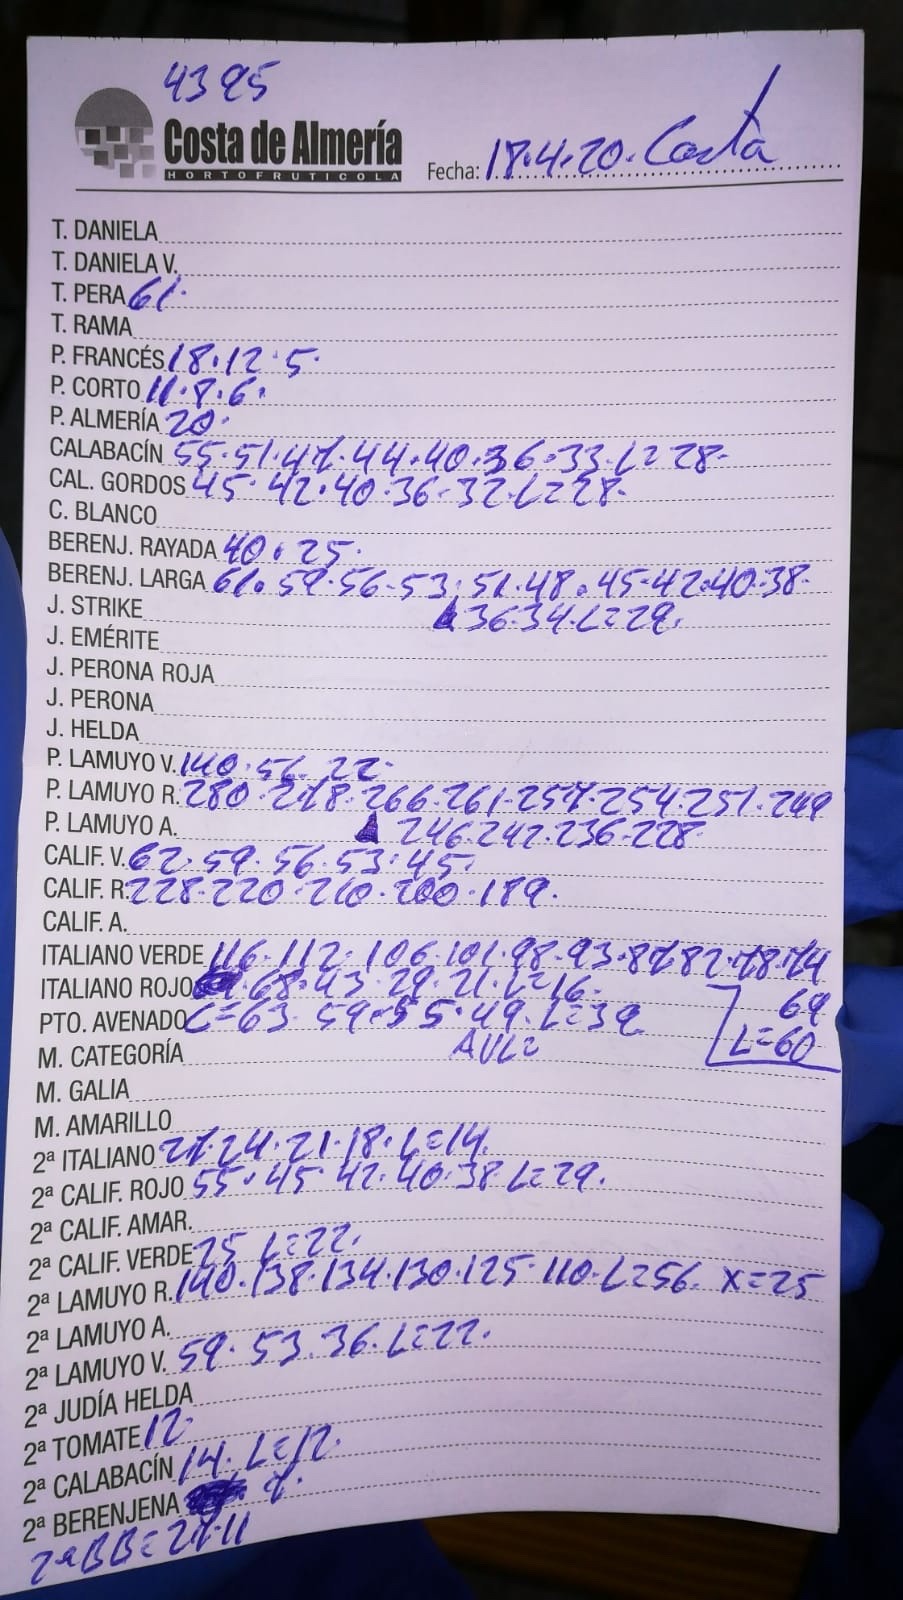 4395
Costa de Almería
HORTOFRUTICOLA
Fecha: 18.4.20. Costa
T. DANIELA
T. DANIELA V.
T. PERA 61.
T. RAMA
P. FRANCÉS 18.12.5.
P. CORTO 11.8.6.
P. ALMERÍA 20.
CALABACÍN 55.51.47.44.40.36.33.L=28.
CAL. GORDOS 45.42.40.36.32.L=28.
C. BLANCO
BERENJ. RAYADA 40.25.
BERENJ. LARGA 61.59.56.53.51.48.45.42.40.38.
J. STRIKE
36.34.L=29.
J. EMÉRITE
J. PERONA ROJA
J. PERONA
J. HELDA
P. LAMUYO V. 140.56.22.
P. LAMUYO R. 280.278.266.261.257.254.251.249
P. LAMUYO A.
246.242.236.228
CALIF. V. 62.59.56.53.45.
CALIF. R. 228.220.210.200.189.
CALIF. A.
ITALIANO VERDE 116.112.106.101.98.93.87.82.78.74
69
L=60
ITALIANO ROJO 68.43.29.21.L=16.
PTO. AVENADO C=63.59.55.49.L=39
M. CATEGORÍA
M. GALIA
M. AMARILLO
2ª ITALIANO 27.24.21.18.L=14.
2ª CALIF. ROJO 55.45.42.40.38.L=29.
2ª CALIF. AMAR.
2ª CALIF. VERDE 25 L=22.
2ª LAMUYO R. 140.138.134.130.125.110.L=56. X=25
2ª LAMUYO A.
2ª LAMUYO V. 59.53.36.L=22.
2ª JUDÍA HELDA
2ª TOMATE 12
2ª CALABACÍN 14.L=12.
2ª BERENJENA 7.
2ªBB=27.11